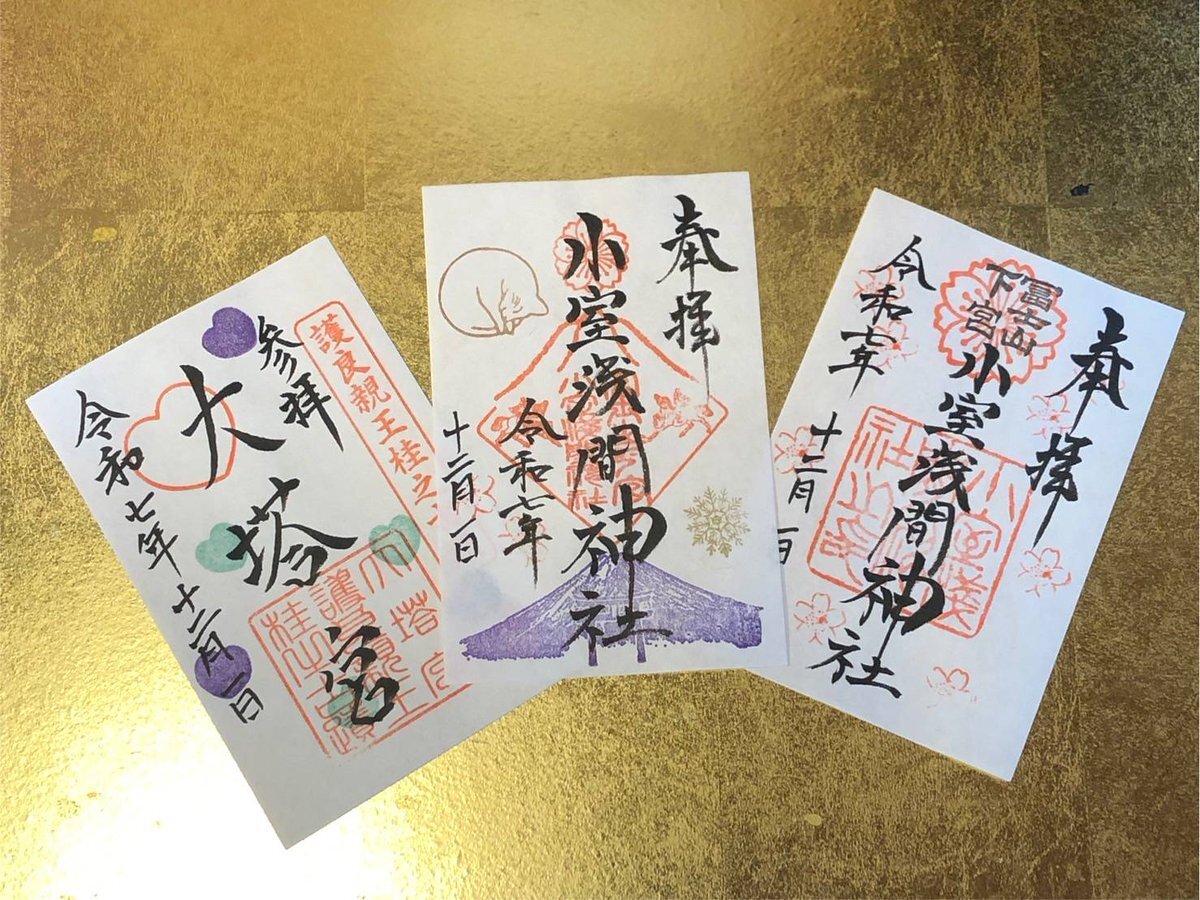 参拝
護良親王桂之
大塔宮
令和七年十二月一日
奉拝
小室浅間神社
令和七年
十二月一日
奉拝
冨士山
下宮
小室浅間神社
令和七年
十二月一日